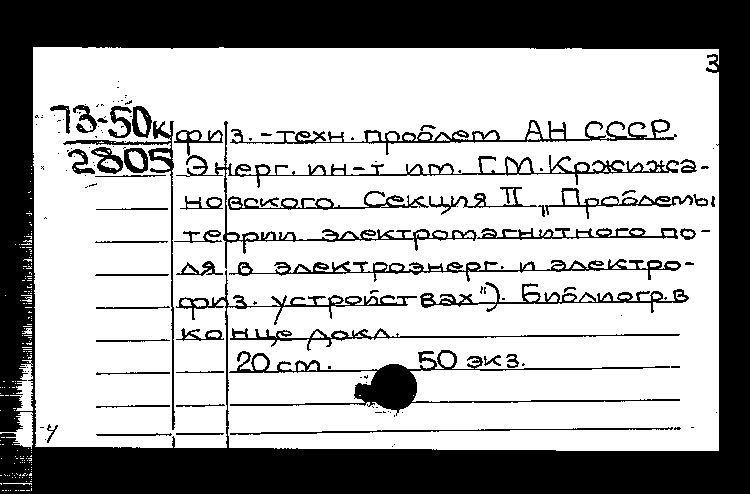 3
73-50к физ.-техн. проблем АН СССР.
2805 Энерг. ин-т им. Г.М. Кржижа-
новского. Секция II „Проблемы
теории электромагнитного по-
ля в электроэнерг. и электро-
физ. устройствах"). Библиогр. в
конце докл.
20 ст. 50 экз.